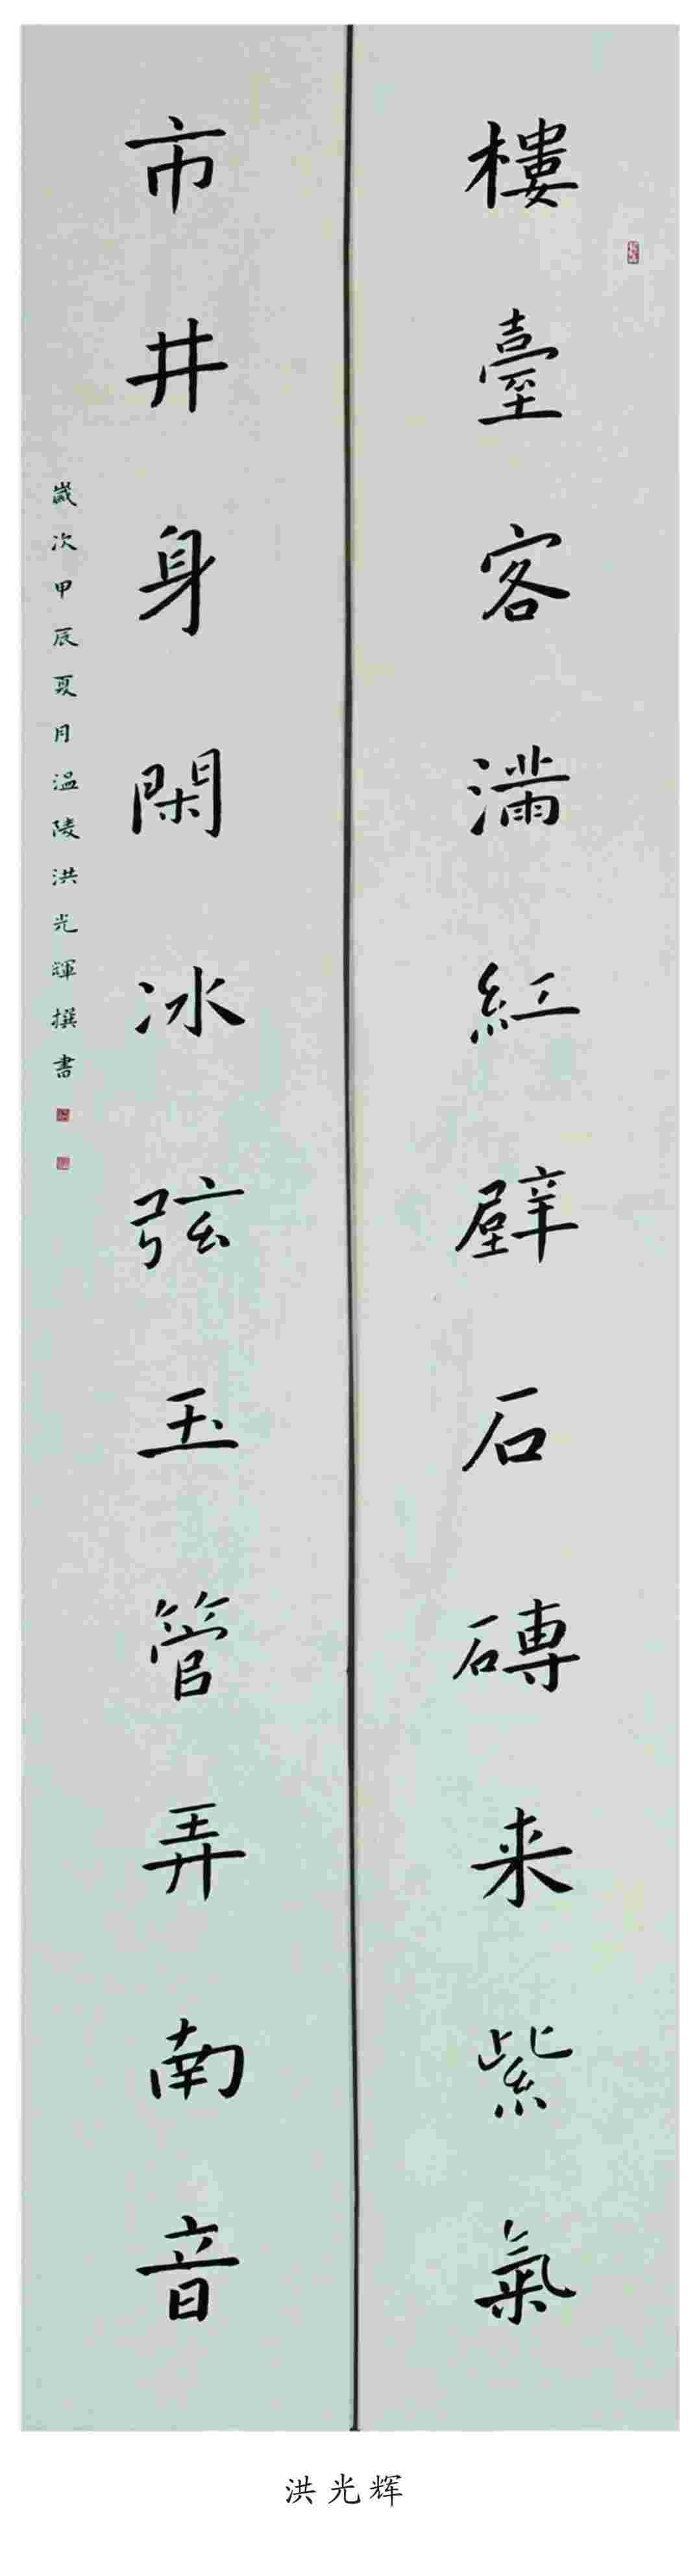 樓臺客滿紅壁石磚来紫氣
市井身閑冰弦玉管弄南音
歲次甲辰夏月温陵洪光輝撰書
洪光辉